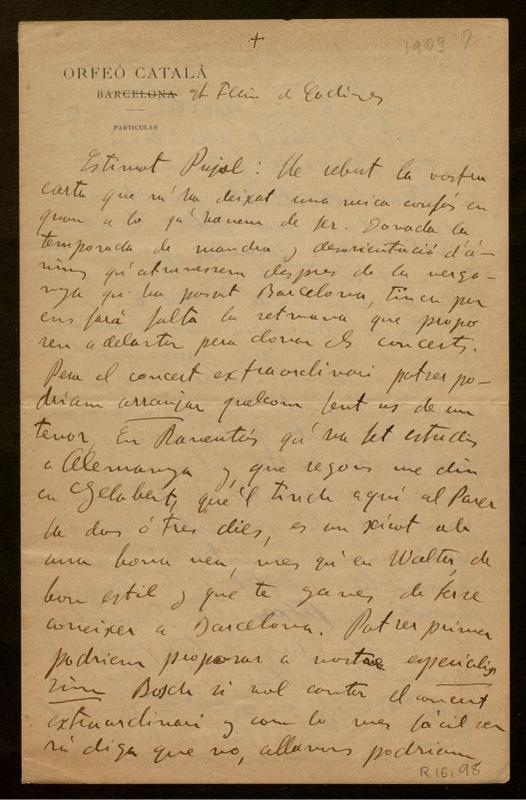 +
1909 ?
ORFEÓ CATALÁ
BARCELONA
PARTICULAR
Estimat Pujol: He rebut la vostra
carta que m'ha deixat una mica confós en
quan a lo qu'havem de fer. Donada la
temporada de mandra y desorientació d'á-
nims qu'atravessem despres de la
que ha passat Barcelona, tinch por
ens fará falta la setmana que propo
sen adelantar pera donar els concerts.
Pera el concert extraordinari potser po-
driam arranjar quelcom fent us de un
tenor, En Raventós qu'ha fet estudis
a Alemanya y que segons me diu
en Gelabert, que'l tinch aquí al Parer
fa dos ó tres dies, es un xicot ab
una bona veu, mes qu'en Walter, de
bon estil y que te ganes de ferse
coneixer a Barcelona. Potser primer
podriem proposar a nostre especialis
sim Bosch si vol cantar el concert
extraordinari y com lo mes fácil sen
rá diga que no, allavors podriam
R 161, 98